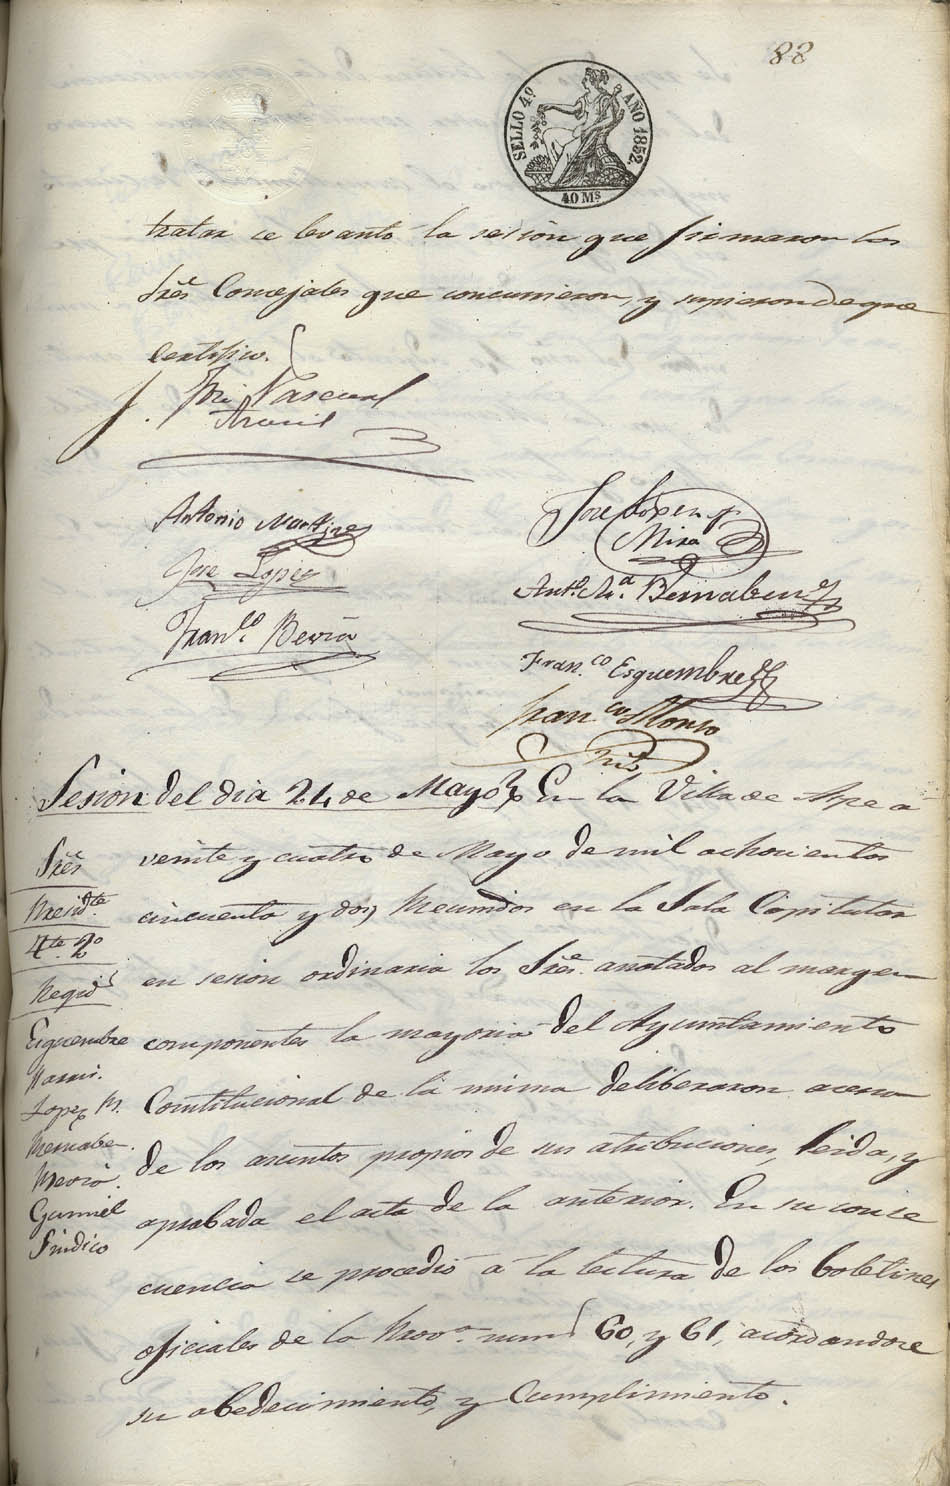 88
SELLO 4º AÑO 1852.
40 Ms
tratar se levantó la sesion que firmaron los
Sres Concejales que concurrieron, y supieron de que
Certifico.
José Pascual
Antonio Martinez
Jose Lopez
Franco. Beviá
Jose Lopez y
Mira
Anto. Ma. Bernabeu
Fran.co Esguembre
Franco Alonso
Sesion del dia 24 de Mayo En la Villa de Aspe á
veinte y cuatro de Mayo de mil ochocientos
cincuenta y dos, Reunidos en la Sala Capitular
en sesion ordinaria los Sres. anotados al margen
componentes la mayoria del Ayuntamiento
Constitucional de la misma deliberaron acerca
de los asuntos propios de sus atribuciones, leida, y
aprobada el acta de la anterior. En su conse
cuencia se procedió á la lectura de los boletines
oficiales de la Prov.a nums 60, y 61, acordandose
su obedecimiento, y Cumplimiento.
Sres
Presidte.
Tte. 2o
Regids
Esguembre
Lopez M.
Bernabeu.
Beviá.
Sindico